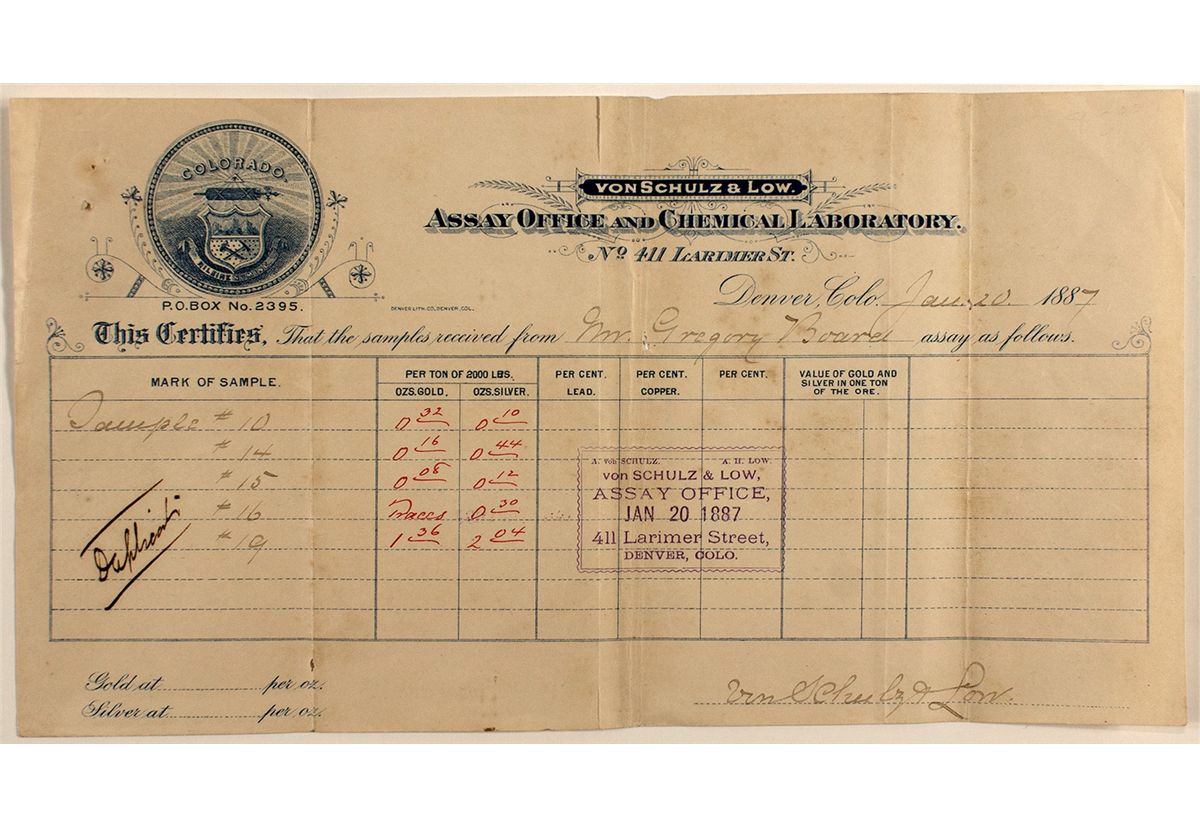 COLORADO.
P.O.BOX No.2395.
DENVER LITH. CO., DENVER, COL.
VON SCHULZ & LOW.
ASSAY OFFICE AND CHEMICAL LABORATORY.
No 411 LARIMER ST.
Denver, Colo. Jan. 20 1887
This Certifies, That the samples received from Mr. Gregory Board assay as follows.
MARK OF SAMPLE. PER TON OF 2000 LBS. PER CENT. PER CENT. PER CENT. VALUE OF GOLD AND SILVER IN ONE TON OF THE ORE.
OZS. GOLD. OZS. SILVER. LEAD. COPPER.
Sample #10 0 32 0 10
#14 0 16 0 44
#15 0 08 0 12
#16 Traces 0 30
#19 1 36 2 04
Duplicate
A. von SCHULZ. A. H. LOW.
von SCHULZ & LOW,
ASSAY OFFICE,
JAN 20 1887
411 Larimer Street,
DENVER, COLO.
Gold at per oz.
Silver at per oz.
Von Schulz & Low.